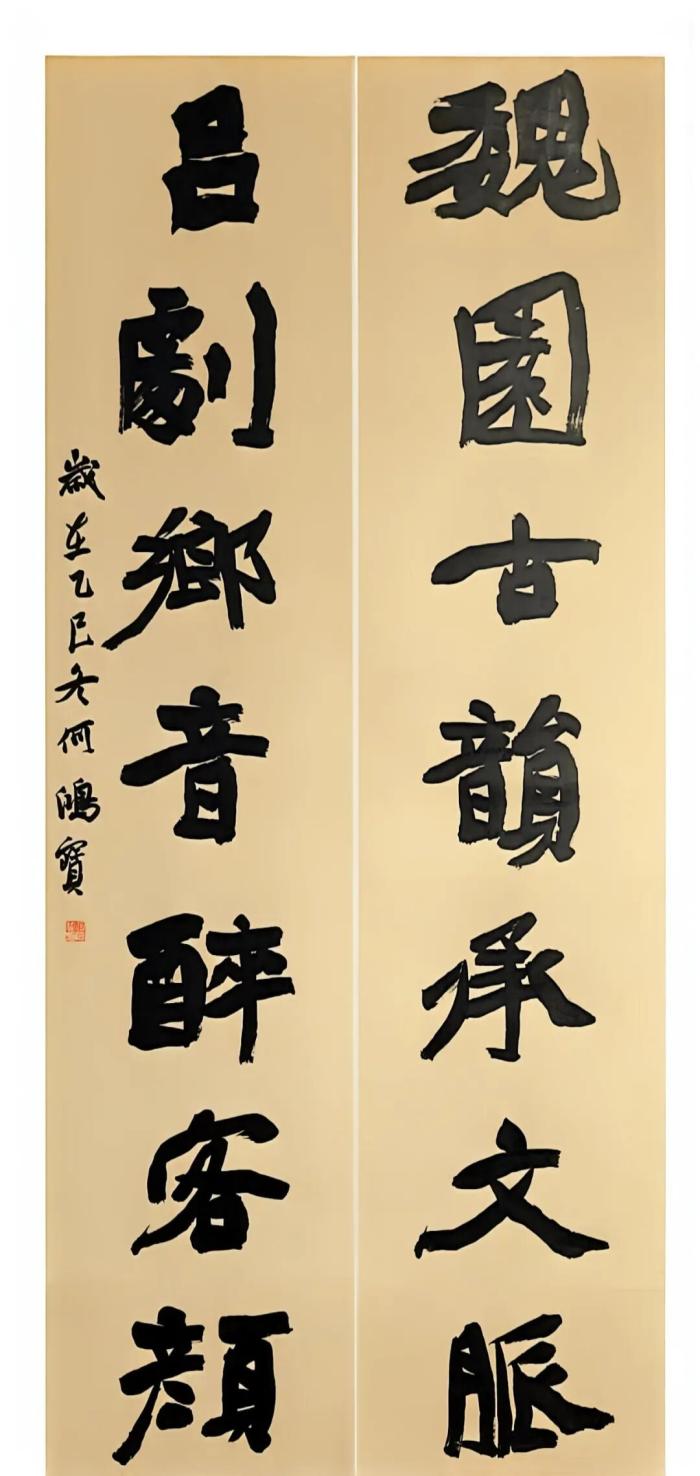 魏園古韻承文脈
呂劇鄉音醉客顔
歲在乙巳冬何鴻寶